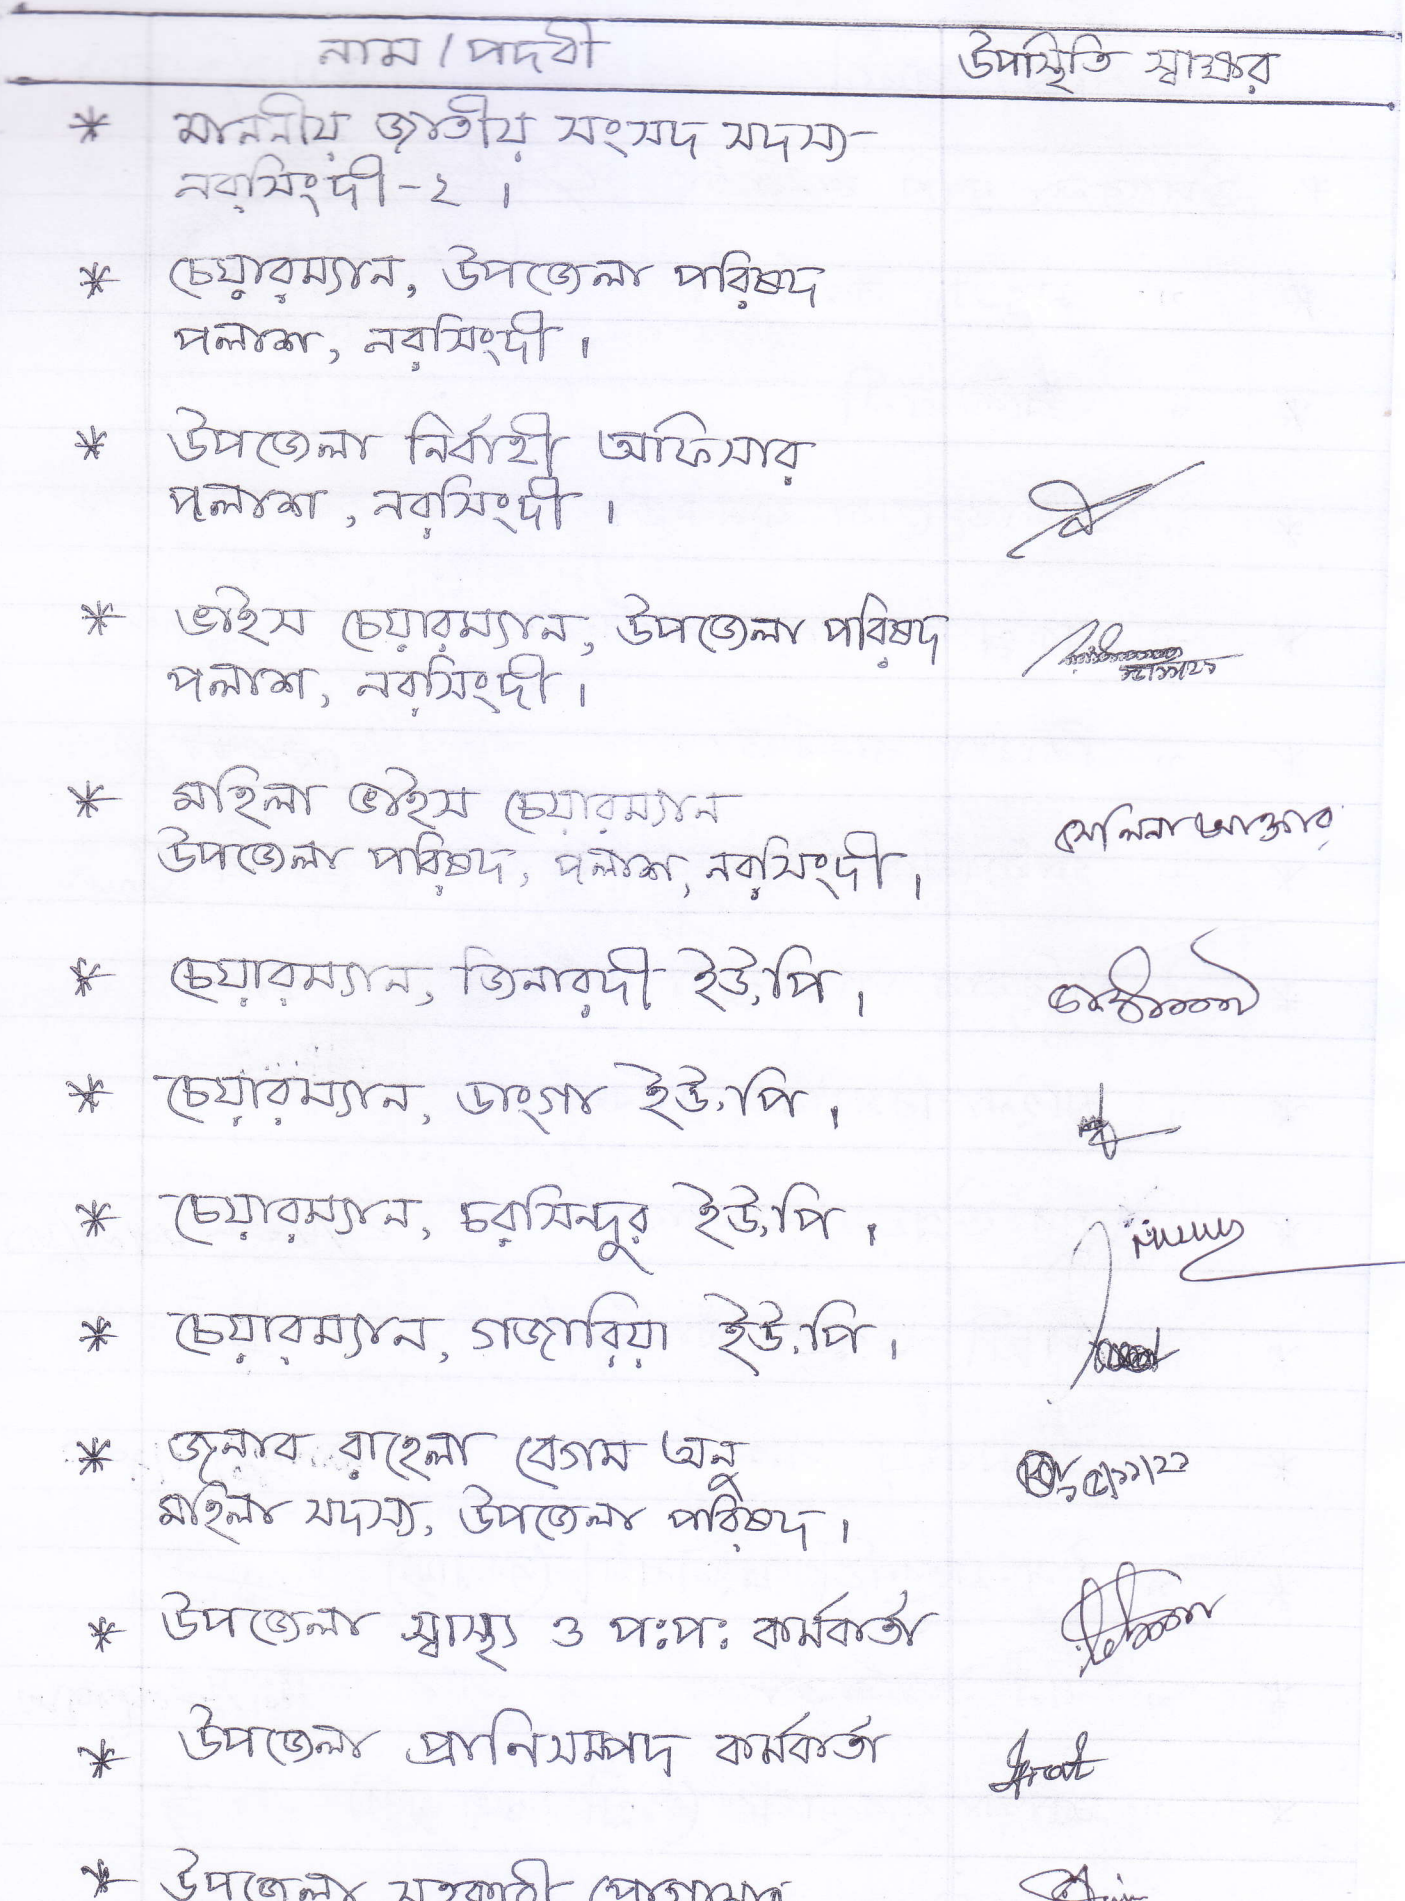 নাম / পদবী উপস্থিতি স্বাক্ষর
* মাননীয় জাতীয় সংসদ সদস্য
নরসিংদী - ২ ।
* চেয়ারম্যান, উপজেলা পরিষদ
পলাশ, নরসিংদী ।
* উপজেলা নির্বাহী অফিসার
পলাশ, নরসিংদী ।
* ভাইস চেয়ারম্যান, উপজেলা পরিষদ
পলাশ, নরসিংদী ।
* মহিলা ভাইস চেয়ারম্যান সেলিনা আক্তার
উপজেলা পরিষদ, পলাশ, নরসিংদী ।
* চেয়ারম্যান, জিনারদী ইউ,পি ।
* চেয়ারম্যান, ডাংগা ইউ,পি ।
* চেয়ারম্যান, চরসিন্দুর ইউ,পি ।
* চেয়ারম্যান, গজারিয়া ইউ,পি ।
* জনাব রাহেলা বেগম অনু
মহিলা সদস্য, উপজেলা পরিষদ ।
* উপজেলা স্বাস্থ্য ও পঃপঃ কর্মকর্তা
* উপজেলা প্রানিসম্পদ কর্মকর্তা
* উপজেলা সহকারী